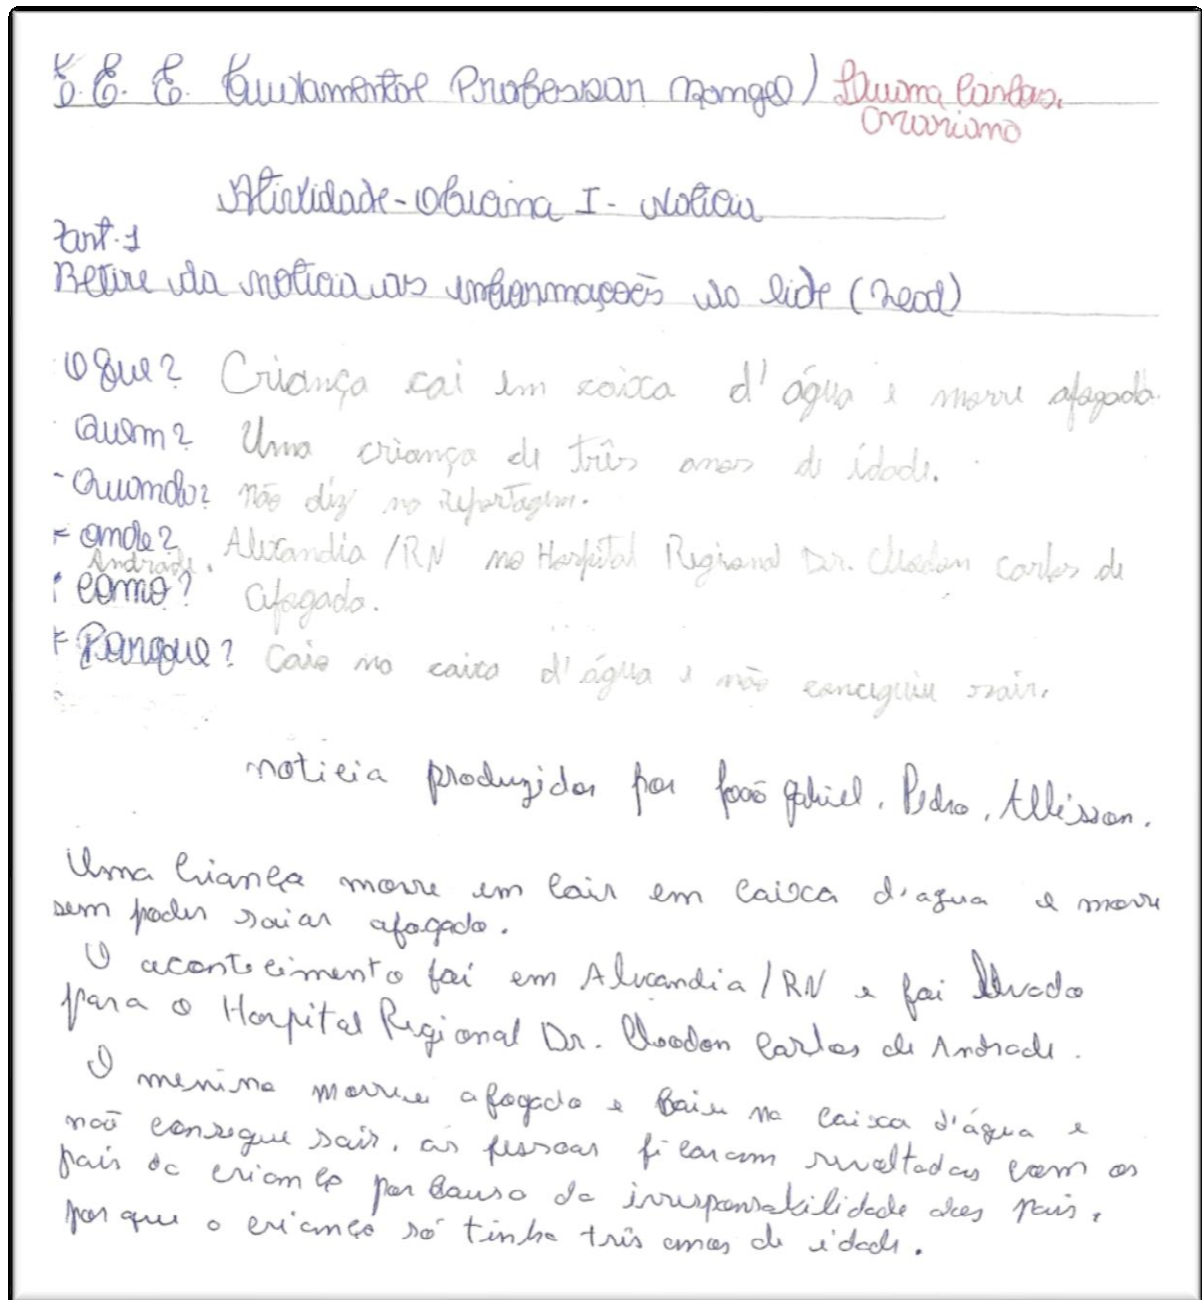 E. E. E. Fundamental Professor Rangel)
Mariano
Atividade-Oficina I- Noticia
Part. 1
Retire da noticia as informações do lide (Lead)
O que? Criança cai em caixa d'água e morre afogada.
Quem? Uma criança de três anos de idade.
- Quando? não diz na reportagem.
onde? Alexandia /RN no Hospital Regional Dr. Cleodon Carlos de
Andrade.
como? afogado.
Porque? Caio na caixa d'água e não conciguiu sair.
noticia produzida por João gabriel, Pedro, Allisson.
Uma Criança morre em Cair em Caixa d'agua e morre
sem poder saiar afogado.
O acontecimento foi em Alexandia /RN e foi levado
para o Hospital Regional Dr. Cleodon Carlos de Andrade.
O menino morreu afogado e Caiu na Caixa d'água e
não consegue sair. as pessoas ficaram revoltadas com os
pais da criança por Causa da irresponsabilidade dos pais,
por que a criança só tinha três anos de idade.